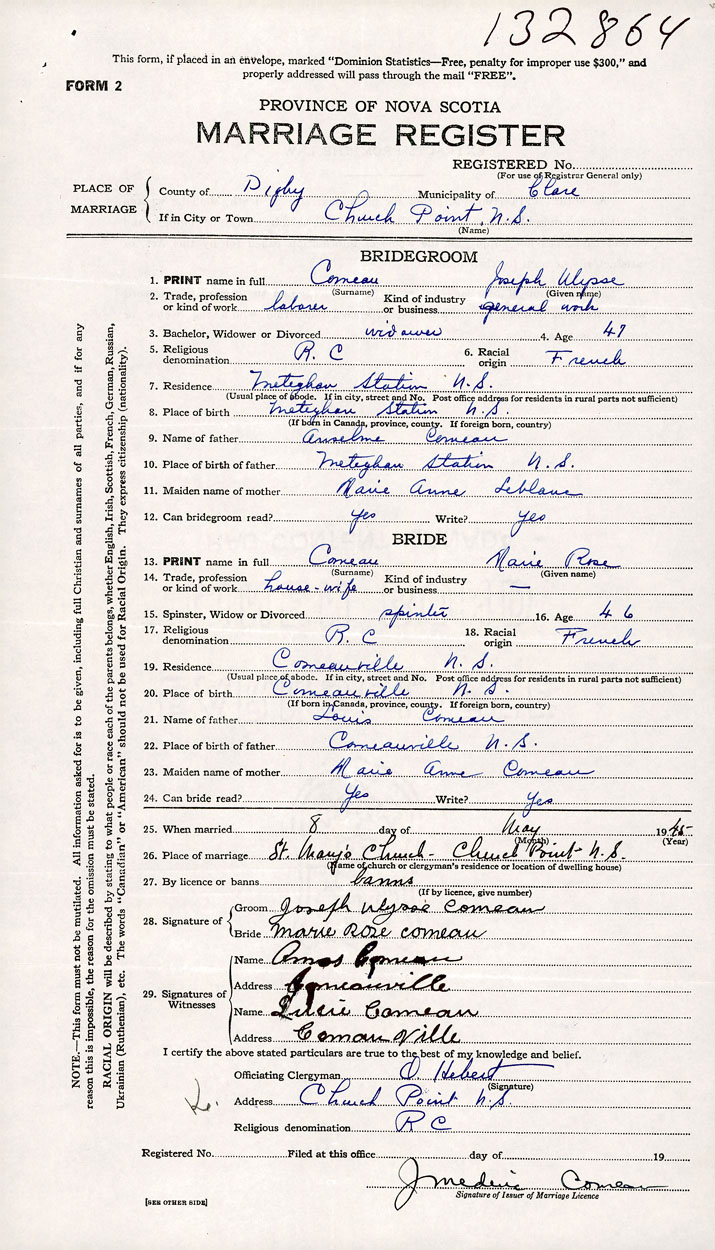 132864
This form, if placed in an envelope, marked "Dominion Statistics—Free, penalty for improper use $300," and
properly addressed will pass through the mail "FREE".
FORM 2
PROVINCE OF NOVA SCOTIA
MARRIAGE REGISTER
REGISTERED No.
(For use of Registrar General only)
PLACE OF MARRIAGE
County of Digby Municipality of Clare
If in City or Town Church Point, N.S.
(Name)
BRIDEGROOM
1. PRINT name in full Comeau Joseph Ulysse
(Surname) (Given name)
2. Trade, profession or kind of work laborer Kind of industry or business general work
3. Bachelor, Widower or Divorced widower 4. Age 47
5. Religious denomination R. C 6. Racial origin French
7. Residence Meteghan Station N.S.
(Usual place of abode. If in city, street and No. Post office address for residents in rural parts not sufficient)
8. Place of birth Meteghan Station N.S.
(If born in Canada, province, county. If foreign born, country)
9. Name of father Anselme Comeau
10. Place of birth of father Meteghan Station N.S.
11. Maiden name of mother Marie Anne Leblanc
12. Can bridegroom read? Yes Write? Yes
BRIDE
13. PRINT name in full Comeau Marie Rose
(Surname) (Given name)
14. Trade, profession or kind of work house-wife Kind of industry or business —
15. Spinster, Widow or Divorced spinter 16. Age 46
17. Religious denomination R. C 18. Racial origin French
19. Residence Comeauville N.S.
(Usual place of abode. If in city, street and No. Post office address for residents in rural parts not sufficient)
20. Place of birth Comeauville N.S.
(If born in Canada, province, county. If foreign born, country)
21. Name of father Louis Comeau
22. Place of birth of father Comeauville N.S.
23. Maiden name of mother Marie Anne Comeau
24. Can bride read? Yes Write? Yes
25. When married 8 day of May 1945
(Month) (Year)
26. Place of marriage St. Mary's Church - Church Point - N.S.
(Name of church or clergyman's residence or location of dwelling house)
27. By licence or banns banns
(If by licence, give number)
28. Signature of
Groom Joseph Ulysse Comeau
Bride Marie Rose Comeau
29. Signatures of Witnesses
Name Amos Comeau
Address Comeauville
Name Lucie Comeau
Address Comauville
I certify the above stated particulars are true to the best of my knowledge and belief.
Officiating Clergyman O. Hebert
(Signature)
Address Church Point N.S.
Religious denomination R C
Registered No. Filed at this office day of 19
J medric Comeau
Signature of Issuer of Marriage Licence
[SEE OTHER SIDE]
NOTE.—This form must not be mutilated. All information asked for is to be given, including full Christian and surnames of all parties, and if for any
reason this is impossible, the reason for the omission must be stated.
RACIAL ORIGIN will be described by stating to what people or race each of the parents belongs, whether English, Irish, Scottish, French, German, Russian,
Ukrainian (Ruthenian), etc. The words "Canadian" or "American" should not be used for Racial Origin. They express citizenship (nationality).